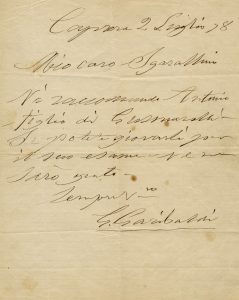 Caprera 2 Luglio 78
Mio caro Sgarallino
Vi raccomando Antonio
figlio di
Se potete giovarli per
il suo esame - ve ne
sarò grato -
Sempre Vro
G. Garibaldi